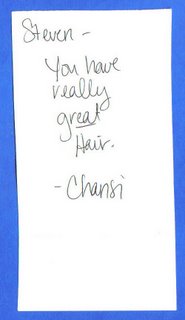 Steven -
You have
really
great
Hair.
- Chansi